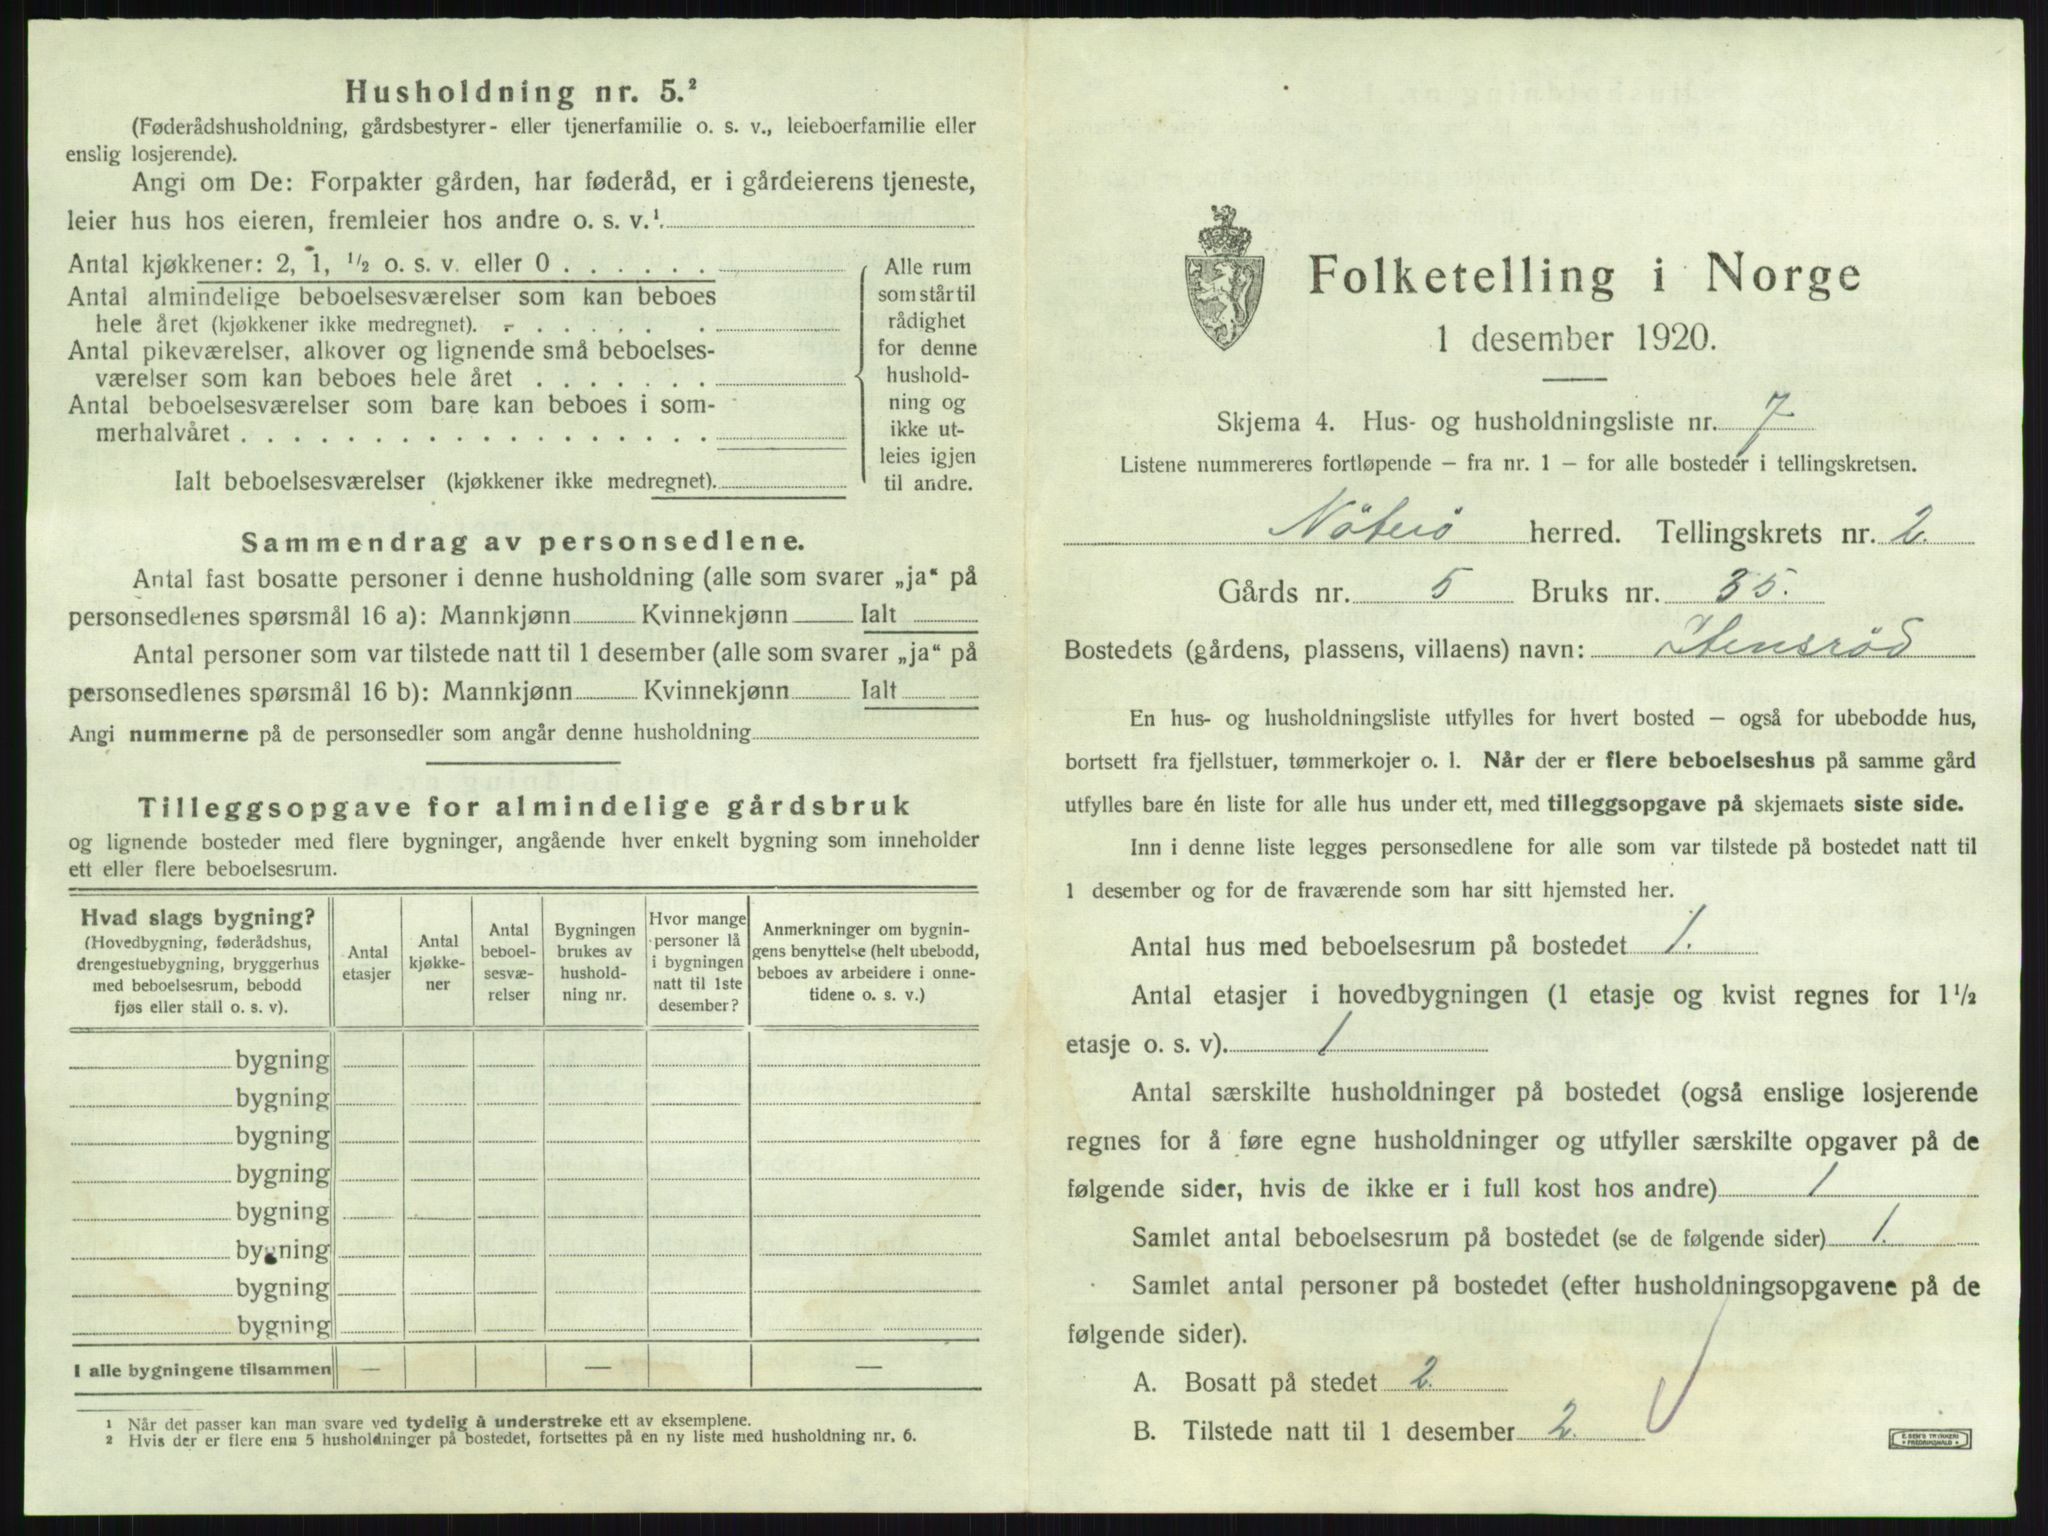 Husholdning nr. 5.²
(Føderådshusholdning, gårdsbestyrer- eller tjenerfamilie o. s. v., leieboerfamilie eller
enslig losjerende).
Angi om De: Forpakter gården, har føderåd, er i gårdeierens tjeneste,
leier hus hos eieren, fremleier hos andre o. s. v.¹
Antal kjøkkener: 2, 1, ½ o. s. v. eller 0 . . . . . .
Antal almindelige beboelsesværelser som kan beboes
hele året (kjøkkener ikke medregnet). . . . . . .
Antal pikeværelser, alkover og lignende små beboelses-
værelser som kan beboes hele året . . . . . . .
Antal beboelsesværelser som bare kan beboes i som-
merhalvåret . . . . . . . . . . . . . . . . . .
Ialt beboelsesværelser (kjøkkener ikke medregnet).
Alle rum
som står til
rådighet
for denne
hushold-
ning og
ikke ut-
leies igjen
til andre.
Sammendrag av personsedlene.
Antal fast bosatte personer i denne husholdning (alle som svarer „ja“ på
personsedlenes spørsmål 16 a): Mannkjønn Kvinnekjønn Ialt
Antal personer som var tilstede natt til 1 desember (alle som svarer „ja“ på
personsedlenes spørsmål 16 b): Mannkjønn Kvinnekjønn Ialt
Angi nummerne på de personsedler som angår denne husholdning
Tilleggsopgave for almindelige gårdsbruk
og lignende bosteder med flere bygninger, angående hver enkelt bygning som inneholder
ett eller flere beboelsesrum.
Hvad slags bygning?
(Hovedbygning, føderådshus,
drengestuebygning, bryggerhus
med beboelsesrum, bebodd
fjøs eller stall o. s. v).
Antal
etasjer
Antal
kjøkke-
ner
Antal
beboel-
sesvæ-
relser
Bygningen
brukes av
hushold-
ning nr.
Hvor mange
personer lå
i bygningen
natt til 1ste
desember?
Anmerkninger om bygnin-
gens benyttelse (helt ubebodd,
beboes av arbeidere i onne-
tidene o. s. v.)
bygning
bygning
bygning
bygning
bygning
bygning
bygning
bygning
I alle bygningene tilsammen — — —
¹ Når det passer kan man svare ved tydelig å understreke ett av eksemplene.
² Hvis der er flere enn 5 husholdninger på bostedet, fortsettes på en ny liste med husholdning nr. 6.
Folketelling i Norge
1 desember 1920.
Skjema 4. Hus- og husholdningsliste nr. 7
Listene nummereres fortløpende – fra nr. 1 – for alle bosteder i tellingskretsen.
Nöterö herred. Tellingskrets nr. 2.
Gårds nr. 5 Bruks nr. 35.
Bostedets (gårdens, plassens, villaens) navn: Stensröd
En hus- og husholdningsliste utfylles for hvert bosted – også for ubebodde hus,
bortsett fra fjellstuer, tømmerkojer o. l. Når der er flere beboelseshus på samme gård
utfylles bare én liste for alle hus under ett, med tilleggsopgave på skjemaets siste side.
Inn i denne liste legges personsedlene for alle som var tilstede på bostedet natt til
1 desember og for de fraværende som har sitt hjemsted her.
Antal hus med beboelsesrum på bostedet 1.
Antal etasjer i hovedbygningen (1 etasje og kvist regnes for 1½
etasje o. s. v). 1
Antal særskilte husholdninger på bostedet (også enslige losjerende
regnes for å føre egne husholdninger og utfyller særskilte opgaver på de
følgende sider, hvis de ikke er i full kost hos andre) 1
Samlet antal beboelsesrum på bostedet (se de følgende sider) 1.
Samlet antal personer på bostedet (efter husholdningsopgavene på de
følgende sider).
A. Bosatt på stedet 2.
B. Tilstede natt til 1 desember 2.